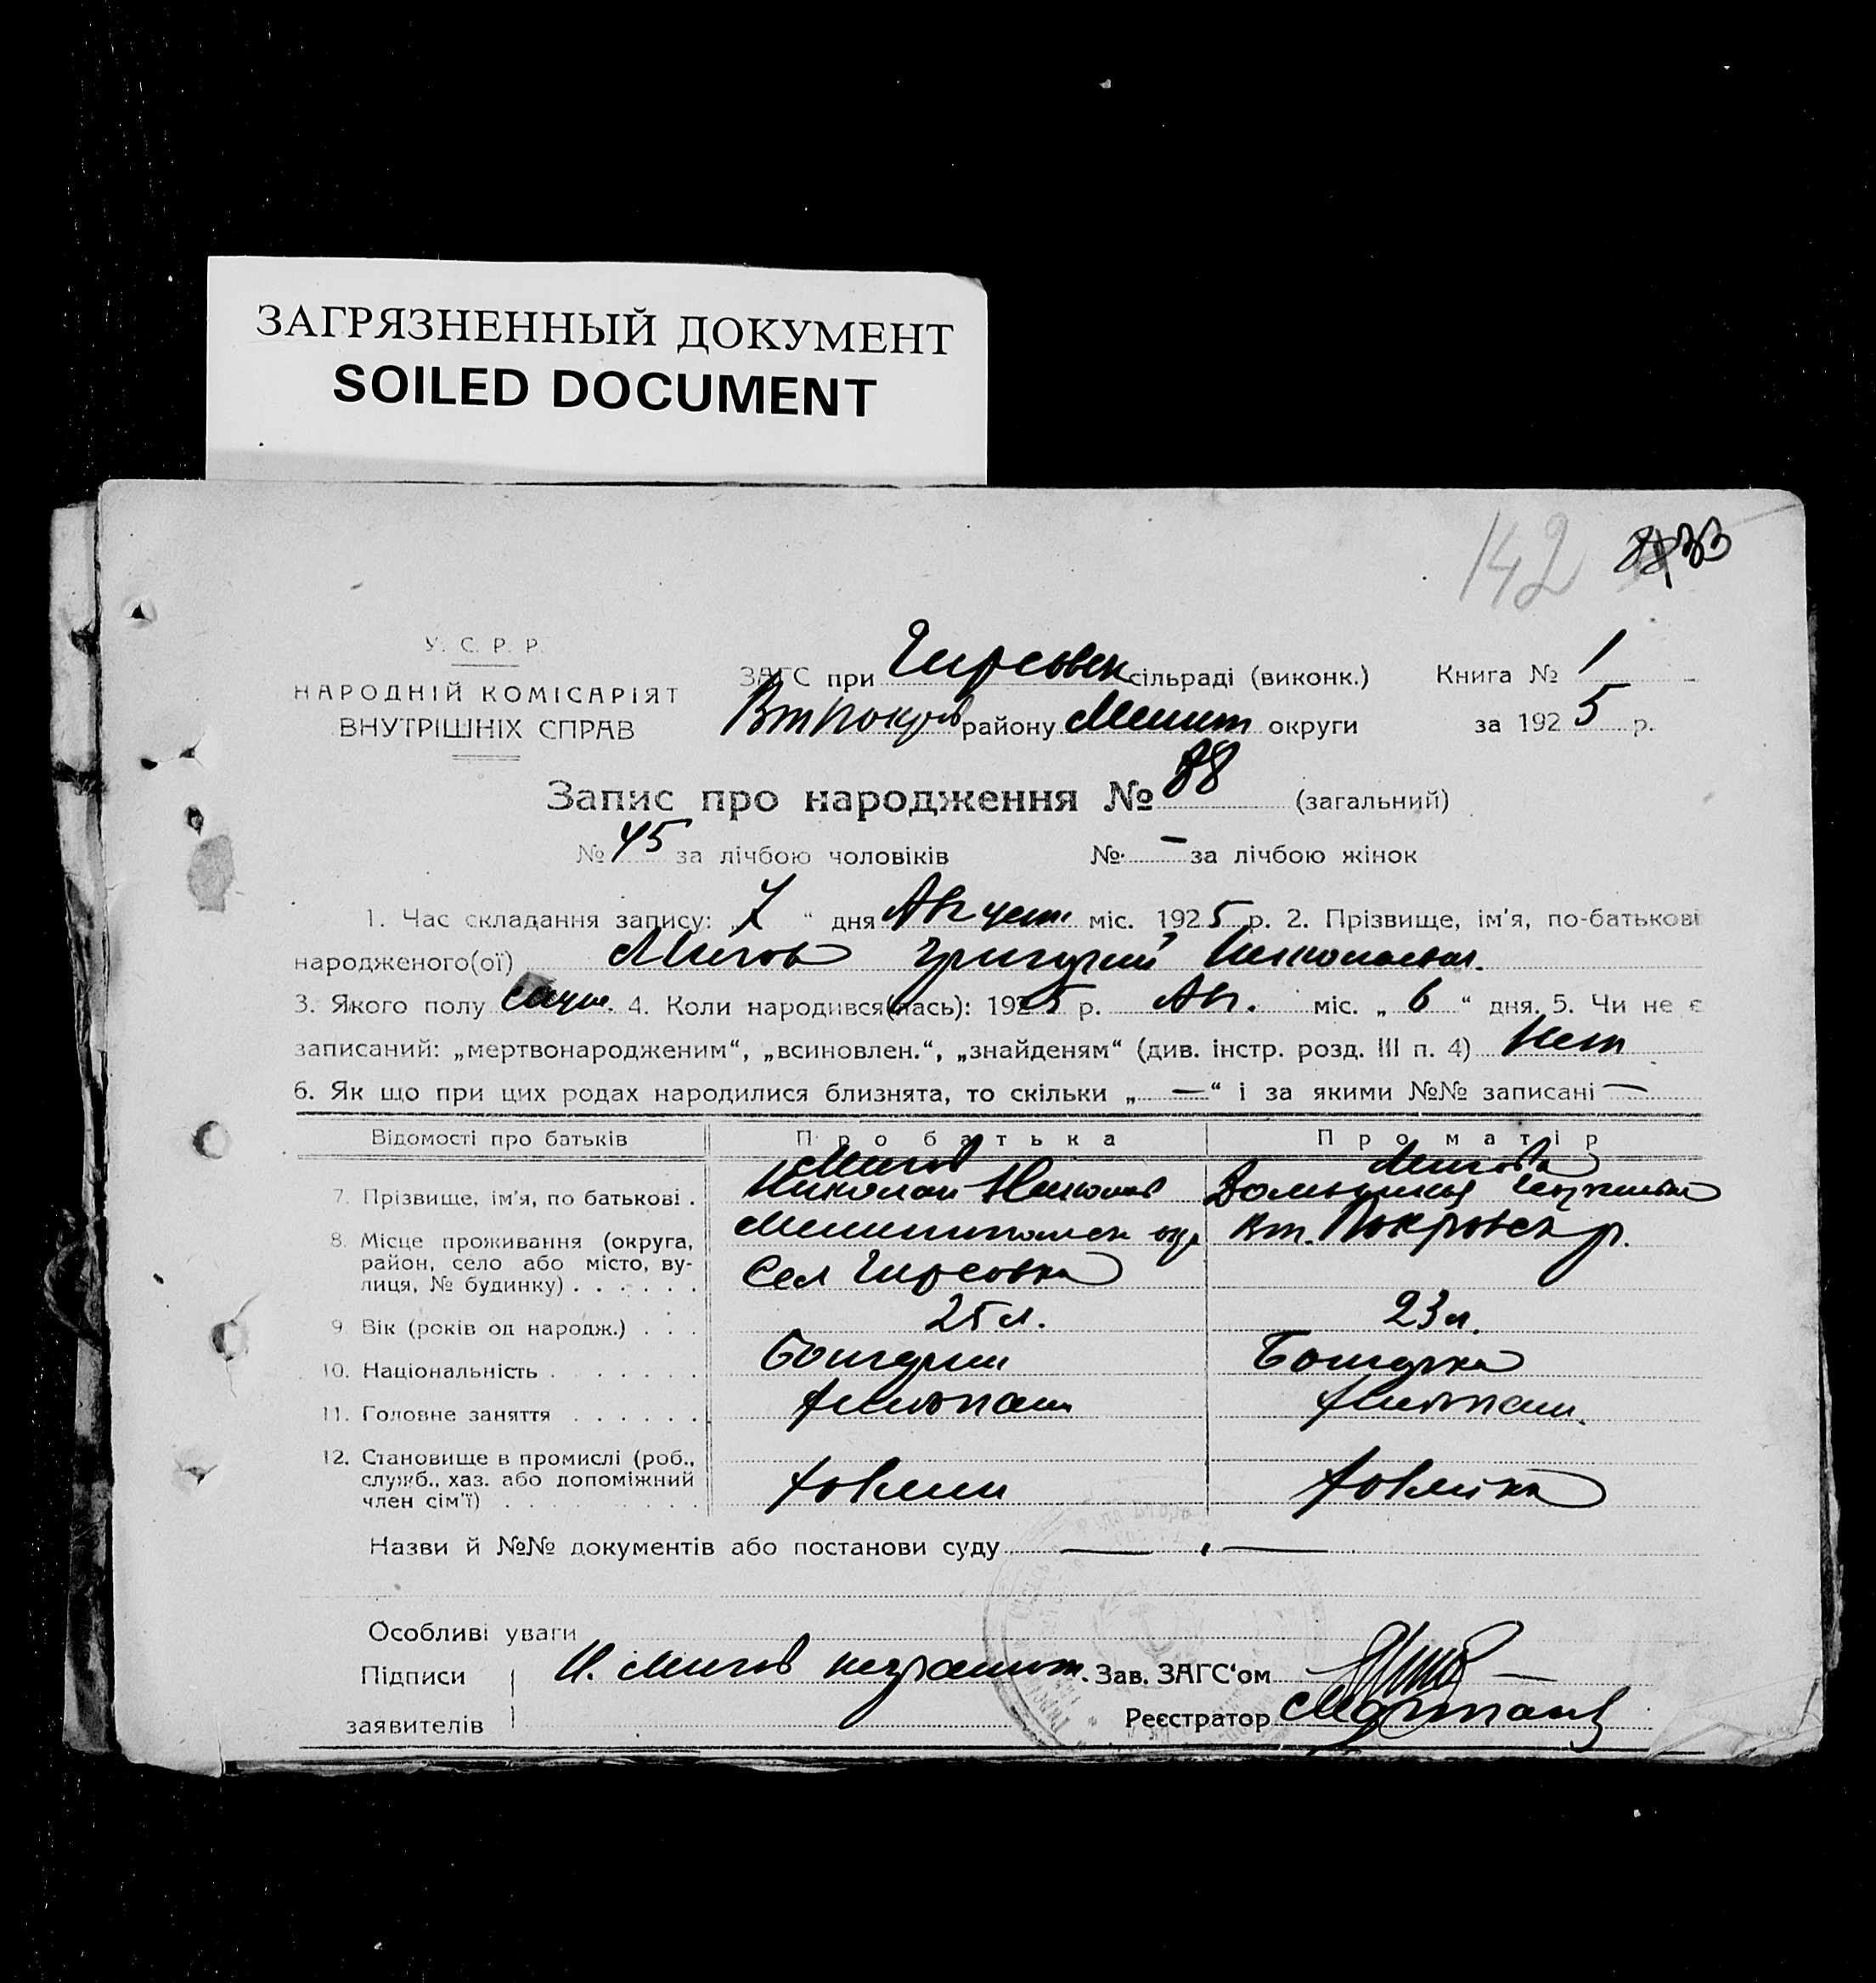 ЗАГРЯЗНЕННЫЙ ДОКУМЕНТ
SOILED DOCUMENT
142
У. С. Р. Р.
НАРОДНІЙ КОМІСАРІЯТ
ВНУТРІШНІХ СПРАВ
ЗАГС при Гирсовск сільраді (виконк.) Книга № 1
району Мелит округи за 1925 р.
Запис про народження № 88 (загальний)
№ 45 за лічбою чоловіків №. – за лічбою жінок
1. Час складання запису: 7 “ дня Август міс. 1925 р. 2. Прізвище, ім’я, по-батькові
народженого(ої) Мигов Григорий
3. Якого полу 4. Коли народився(лась): 1925 р. Ав. міс. „ 6 “ дня. 5. Чи не є
записаний: „мертвонародженим“, „всиновлен.“, „знайденям“ (див. інстр. розд. III п. 4) Нет
6. Як що при цих родах народилися близнята, то скільки „ — “ і за якими №№ записані —
Відомості про батьків Про батька Про матір
Мигов Мигова
7. Прізвище, ім’я, по батькові . Николай Николов
8. Місце проживання (округа, Вт. Покровск р.
район, село або місто, ву-
лиця, № будинку) . . . . . . Сел Гирсовка
9. Вік (років од народж.) . . . 25 л. 23 л.
10. Національність . . . . . . . Болгарин Болгарка
11. Головне заняття . . . . . . Хлебпаш Хлебпаш.
12. Становище в промислі (роб.,
служб., хаз. або допоміжний
член сім’ї) . . . . . . . . . Хозяин Хозяйка
Назви й №№ документів або постанови суду — . —
Особливі уваги
Підписи Н. Мигов неграмот. Зав. ЗАГС‘ом
заявителів Реєстратор